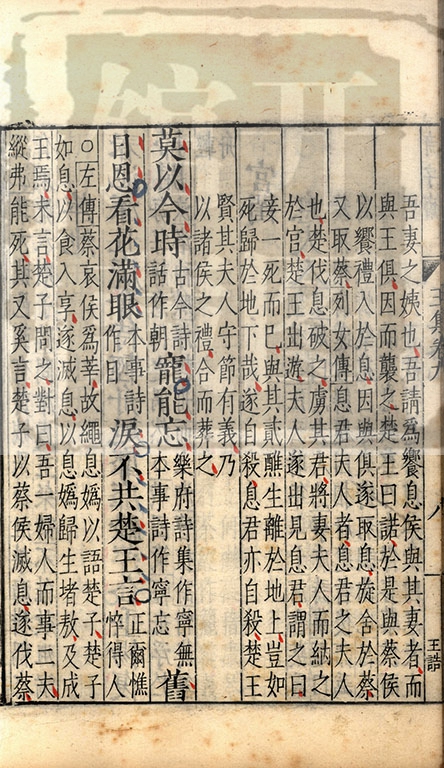 吾妻之姨也吾請爲饗息侯與其妻者而
與王俱因而襲之楚王曰諾於是與蔡侯
以饗禮入於息因與俱遂取息旋舍於蔡
又取蔡列女傳息君夫人者息君之夫人
也楚伐息破之虜其君將妻夫人而納之
於宮楚王出遊夫人遂出見息君謂之曰
妾一死而已與其貳醮生離於地上豈如
死歸於地下哉遂自殺息君亦自殺楚王
賢其夫人守節有義乃
以諸侯之禮合而葬之
莫以今時古今詩話作朝寵能忘樂府詩集作寧無本事詩作寧忘舊
日恩看花滿眼本事詩作目淚不共楚王言正爾憔悴得人
○左傳蔡哀侯爲莘故繩息媯以語楚子楚子
如息以食入享遂滅息以息媯歸生堵敖及成
王焉未言楚子問之對曰吾一婦人而事二夫
縱弗能死其又奚言楚子以蔡侯滅息遂伐蔡
八
王誥